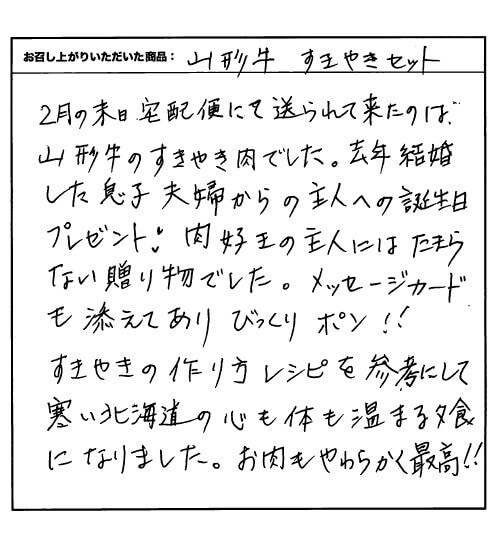 お召し上がりいただいた商品： 山形牛 すきやきセット
2月の末日宅配便にて送られて来たのは、
山形牛のすきやき肉でした。去年結婚
した息子夫婦からの主人への誕生日
プレゼント! 肉好きの主人にはたまら
ない贈り物でした。メッセージカード
も添えてあり びっくりポン!!
すきやきの作り方レシピを参考にして
寒い北海道の心も体も温まる夕食
になりました。お肉もやわらかく最高!!